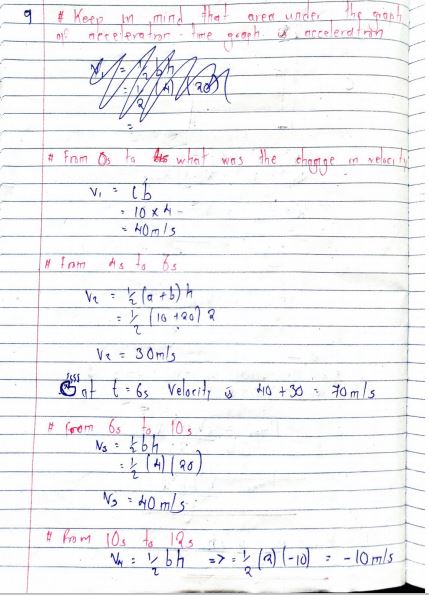 9 # Keep in mind that area under the graph
of acceleration - time graph is acceleration
V₁ = ½ bh
= ½ (4) (20)
=
# From 0s to what was the change in velocity
V₁ = lb
= 10 x 4
= 40m/s
# From 4s to 6s
V₂ = ½ (a + b) h
= ½ (10 + 20) 2
V₂ = 30m/s
at t = 6s Velocity is 40 + 30 = 70m/s
# From 6s to 10s
V₃ = ½ bh
= ½ (4) (20)
V₃ = 40m/s
# From 10s to 12s
V₄ = ½ bh => = ½ (2) (-10) = -10m/s